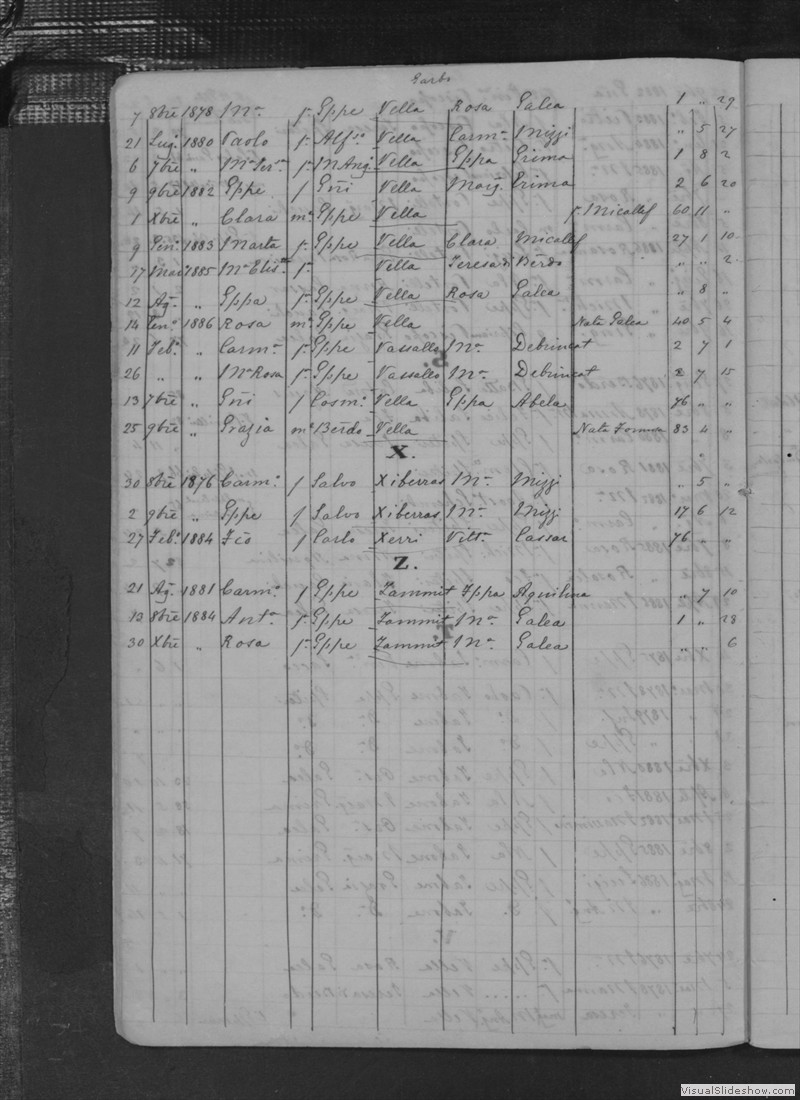 Garbo
7 8bre 1878 Ma. f. Gppe Vella Rosa Galea 1 " 29
21 Lug. 1880 Paolo f. Alf.so Vella Carm.a Mizzi " 5 27
6 7bre " f. M Ang. Vella Gppa Grima 1 8 2
9 9bre 1882 Gppe f Gni Vella Marg. Grima 2 6 20
1 Xbre " Clara me. Gppe Vella f. Micallef 60 11 "
9 Gen. 1883 Marta f. Gppe Vella Clara Micallef 27 1 10
17 1885 Ma Elis. f. Vella Teresa Berdo " " 2
12 Ag. " Gppa f. Gppe Vella Rosa Galea " 8 "
14 Gen. 1886 Rosa me. Gppe Vella Nata Galea 40 5 4
11 Feb. " Carm.a f. Gppe Vassallo Ma. Debrincat 2 7 1
26 " " Ma Rosa f. Gppe Vassallo Ma. Debrincat 2 7 15
13 7bre " Gni f Cosmo Vella Gppa Abela 76 " "
25 9bre " Grazia me Berdo Vella Nata Formosa 83 4 "
X.
30 8bre 1876 Carm. f Salvo Xiberras Ma. Mizzi " 5 "
2 9bre " Gppe f Salvo Xiberras Ma. Mizzi 17 6 12
27 Feb. 1884 Fco f Carlo Xerri Vitt.a Cassar 76 " "
Z.
21 Ag. 1881 Carm. f Gppe Zammit Gppa Aquilina " 7 10
12 8bre 1884 Ant.a f. Gppe Zammit Ma. Galea 1 " 28
30 Xbre " Rosa f. Gppe Zammit Ma. Galea " " 6
VisualSlideshow.com